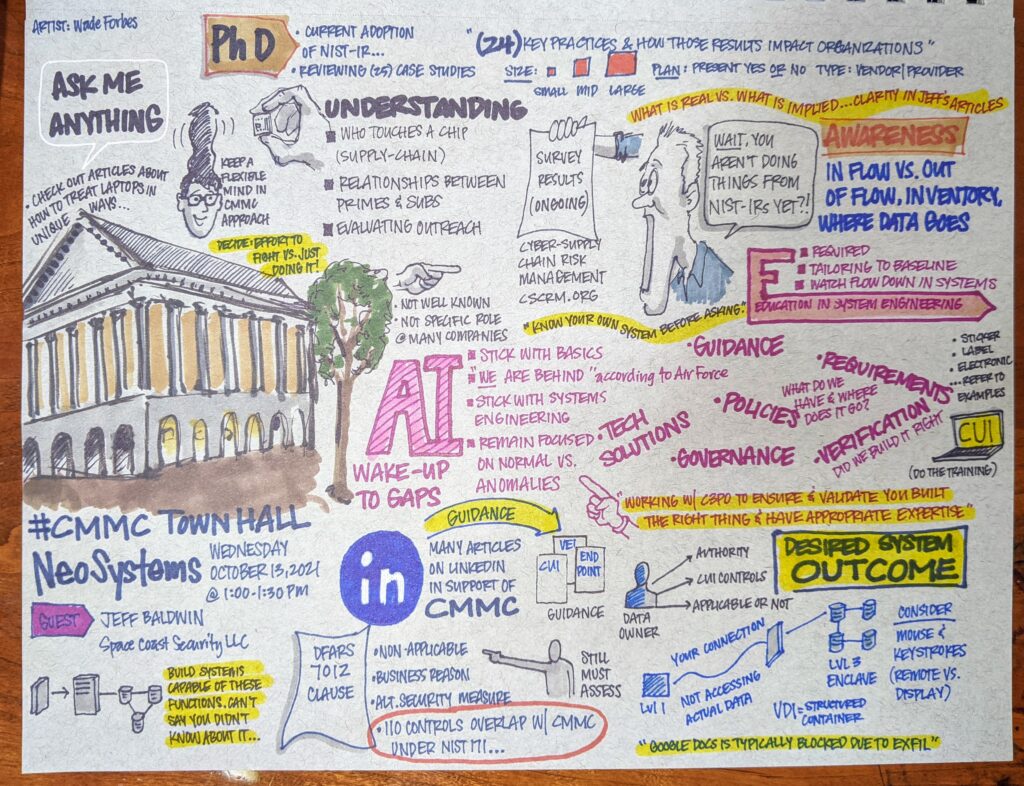 ARTIST: Wade Forbes
PhD
• CURRENT ADOPTION
OF NIST-IR...
• REVIEWING (25) CASE STUDIES
"(24) KEY PRACTICES & HOW THOSE RESULTS IMPACT ORGANIZATIONS"
SIZE:
SMALL MID LARGE
PLAN: PRESENT YES OR NO TYPE: VENDOR/PROVIDER
ASK ME
ANYTHING
• CHECK OUT ARTICLES ABOUT
HOW TO TREAT LAPTOPS IN
UNIQUE WAYS...
KEEP A
FLEXIBLE
MIND IN
CMMC
APPROACH
DECIDE: EFFORT TO
FIGHT VS. JUST
DOING IT!
UNDERSTANDING
WHO TOUCHES A CHIP
(SUPPLY-CHAIN)
RELATIONSHIPS BETWEEN
PRIMES & SUBS
EVALUATING OUTREACH
• NOT WELL KNOWN
• NOT SPECIFIC ROLE
@ MANY COMPANIES
SURVEY
RESULTS
(ONGOING)
CYBER-SUPPLY
CHAIN RISK
MANAGEMENT
CSCRM.ORG
WHAT IS REAL VS. WHAT IS IMPLIED...CLARITY IN JEFF'S ARTICLES
WAIT, YOU
AREN'T DOING
THINGS FROM
NIST-IRs YET?!
"KNOW YOUR OWN SYSTEM BEFORE ASKING."
AWARENESS
IN FLOW VS. OUT
OF FLOW, INVENTORY,
WHERE DATA GOES
E
REQUIRED
TAILORING TO BASELINE
WATCH FLOW DOWN IN SYSTEMS
EDUCATION IN SYSTEM ENGINEERING
AI
WAKE-UP
TO GAPS
STICK WITH BASICS
"WE ARE BEHIND" according to Air Force
STICK WITH SYSTEMS
ENGINEERING
REMAIN FOCUSED
ON NORMAL VS.
ANOMALIES
• GUIDANCE
• POLICIES
• TECH
SOLUTIONS
• GOVERNANCE
• REQUIREMENTS
WHAT DO WE
HAVE & WHERE
DOES IT GO?
• VERIFICATION
DID WE BUILD IT RIGHT
• STICKER
• LABEL
• ELECTRONIC
... REFER TO
EXAMPLES
CUI
(DO THE TRAINING)
"WORKING W/ C3PO TO ENSURE & VALIDATE YOU BUILT
THE RIGHT THING & HAVE APPROPRIATE EXPERTISE"
#CMMC TOWN HALL
NeoSystems
WEDNESDAY
OCTOBER 13, 2021
@ 1:00-1:30 PM
GUEST
JEFF BALDWIN
Space Coast Security LLC
BUILD SYSTEMS
CAPABLE OF THESE
FUNCTIONS. CAN'T
SAY YOU DIDN'T
KNOW ABOUT IT...
in
GUIDANCE
MANY ARTICLES
ON LINKEDIN
IN SUPPORT OF
CMMC
CUI
END
POINT
GUIDANCE
DATA
OWNER
AUTHORITY
CUI CONTROLS
APPLICABLE OR NOT
DESIRED SYSTEM
OUTCOME
DFARS
7012
CLAUSE
• NON-APPLICABLE
• BUSINESS REASON
• ALT. SECURITY MEASURE
• 110 CONTROLS OVERLAP W/ CMMC
UNDER NIST 171...
STILL
MUST
ASSESS
YOUR CONNECTION
LVL 1
NOT ACCESSING
ACTUAL DATA
LVL 3
ENCLAVE
VDI = STRUCTURED
CONTAINER
CONSIDER
MOUSE &
KEYSTROKES
(REMOTE VS.
DISPLAY)
"GOOGLE DOCS IS TYPICALLY BLOCKED DUE TO EXFIL"